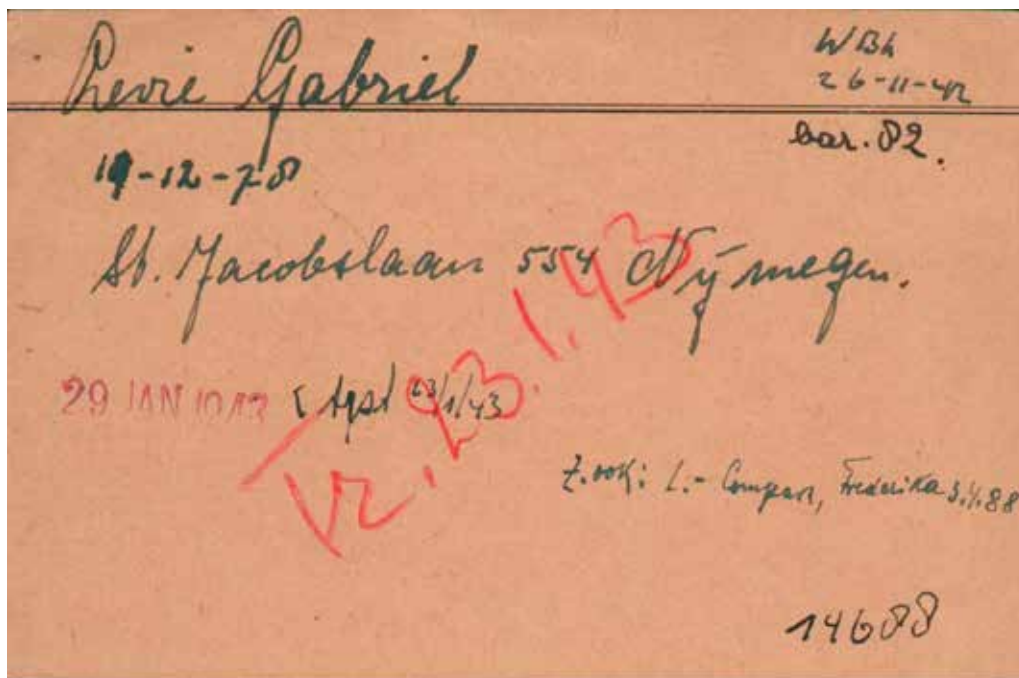 Levie Gabriel
WBK
26-11-42
bar. 82.
19-12-78
St. Jacobslaan 554 Nijmegen.
29 JAN 1943 tgst 23/1/43
Tr. 23.1.43
Z.ook: L.- Compert, Frederika 3.1.88
14688